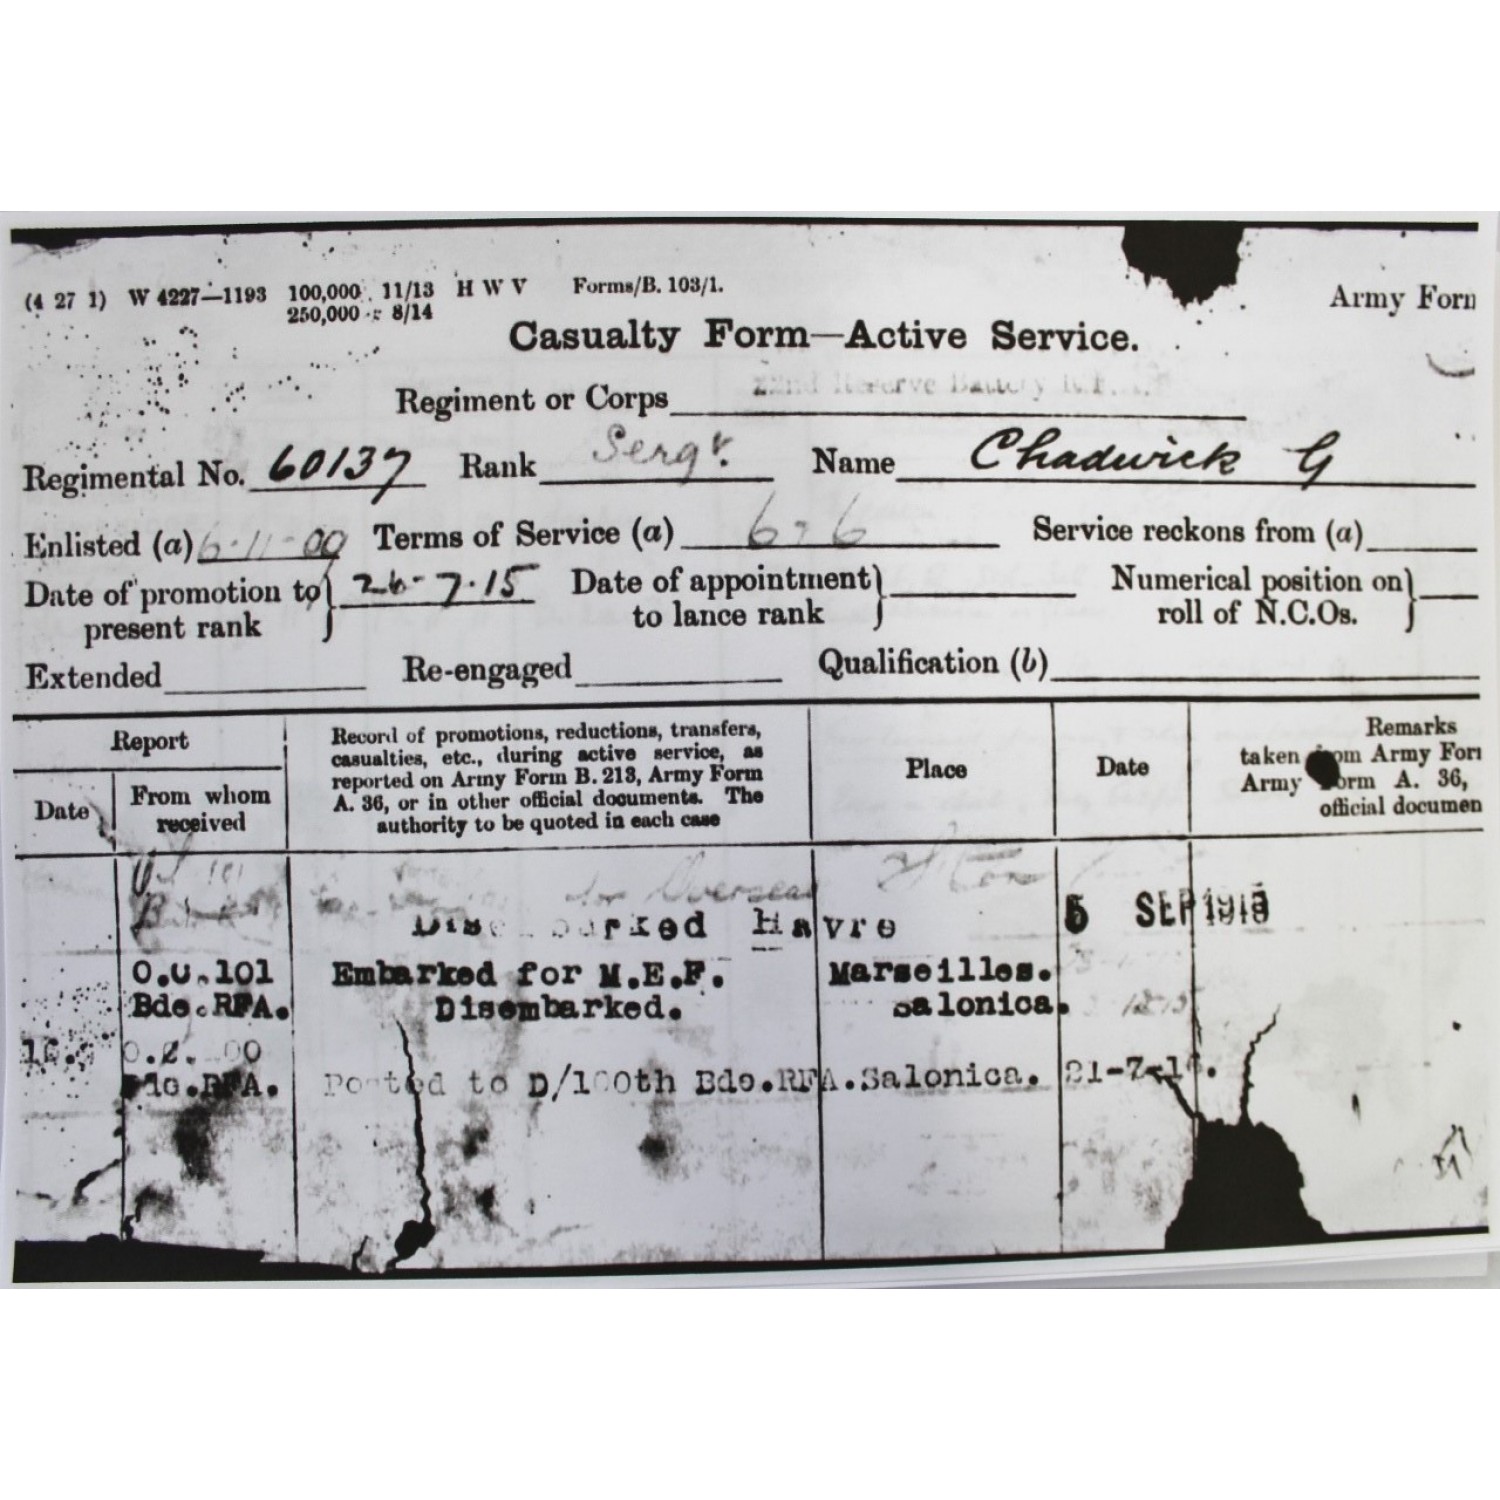 (4 27 1) W 4227—1193 100,000 11/13 H W V Forms/B. 103/1.
250,000 8/14
Army Form
Casualty Form—Active Service.
Regiment or Corps 22nd Reserve Battery
Regimental No. 60137 Rank Sergt. Name Chadwick G
Enlisted (a) 6-11-09 Terms of Service (a) 6 6 Service reckons from (a)
Date of promotion to present rank } 26-7-15 Date of appointment to lance rank } Numerical position on roll of N.C.Os. }
Extended Re-engaged Qualification (b)
Report
Date
From whom
received
Record of promotions, reductions, transfers,
casualties, etc., during active service, as
reported on Army Form B. 213, Army Form
A. 36, or in other official documents. The
authority to be quoted in each case
Place
Date
Remarks
taken from Army For
Army Form A. 36,
official documen
for Overseas
Disembarked Havre 5 SEP 1915
O.C.101 Embarked for M.E.F. Marseilles.
Bde.RFA. Disembarked. Salonica.
Bde.RFA. Posted to D/100th Bde.RFA. Salonica. 21-7-1